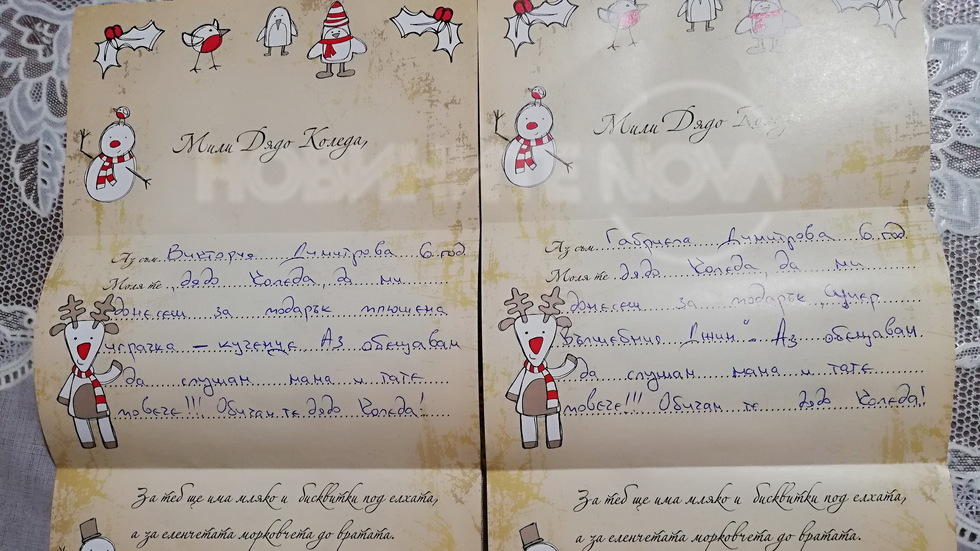 Мили Дядо Коледа,
Аз съм Виктория Димитрова 6 год.
Моля те, дядо Коледа, да ми
донесеш за подарък плюшена
играчка - кученце. Аз обещавам
да слушам мама и тате
повече!!! Обичам те дядо Коледа!
За теб ще има мляко и бисквитки под елхата,
а за еленчетата морковчета до вратата.
Мили Дядо
Аз съм Габриела Димитрова 6 год.
Моля те дядо Коледа, да ми
донесеш за подарък "Супер
вълшебния Джин". Аз обещавам
да слушам мама и тате
повече!!! Обичам те дядо Коледа!
За теб ще има мляко и бисквитки под елхата,
а за еленчетата морковчета до вратата.
НОВИНИТЕ NOVA